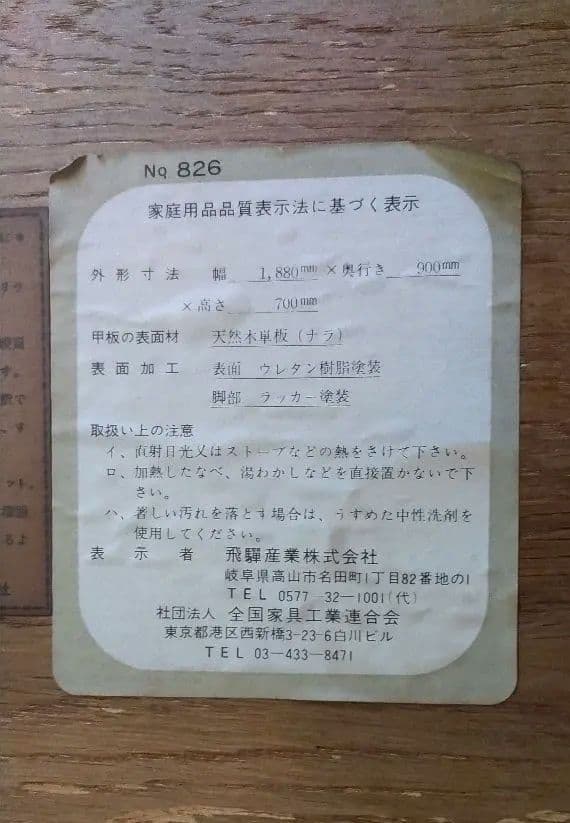 No 826
家庭用品品質表示法に基づく表示
外形寸法 幅 1,880mm ×奥行き 900mm
×高さ 700mm
甲板の表面材 天然木単板(ナラ)
表面加工 表面 ウレタン樹脂塗装
脚部 ラッカー塗装
取扱い上の注意
イ、直射日光又はストーブなどの熱をさけて下さい。
ロ、加熱したなべ、湯わかしなどを直接置かないで下
さい。
ハ、著しい汚れを落とす場合は、うすめた中性洗剤を
使用してください。
表示者 飛驒産業株式会社
岐阜県高山市名田町1丁目82番地の1
TEL 0577-32-1001(代)
社団法人 全国家具工業連合会
東京都港区西新橋3-23-6白川ビル
TEL 03-433-8471